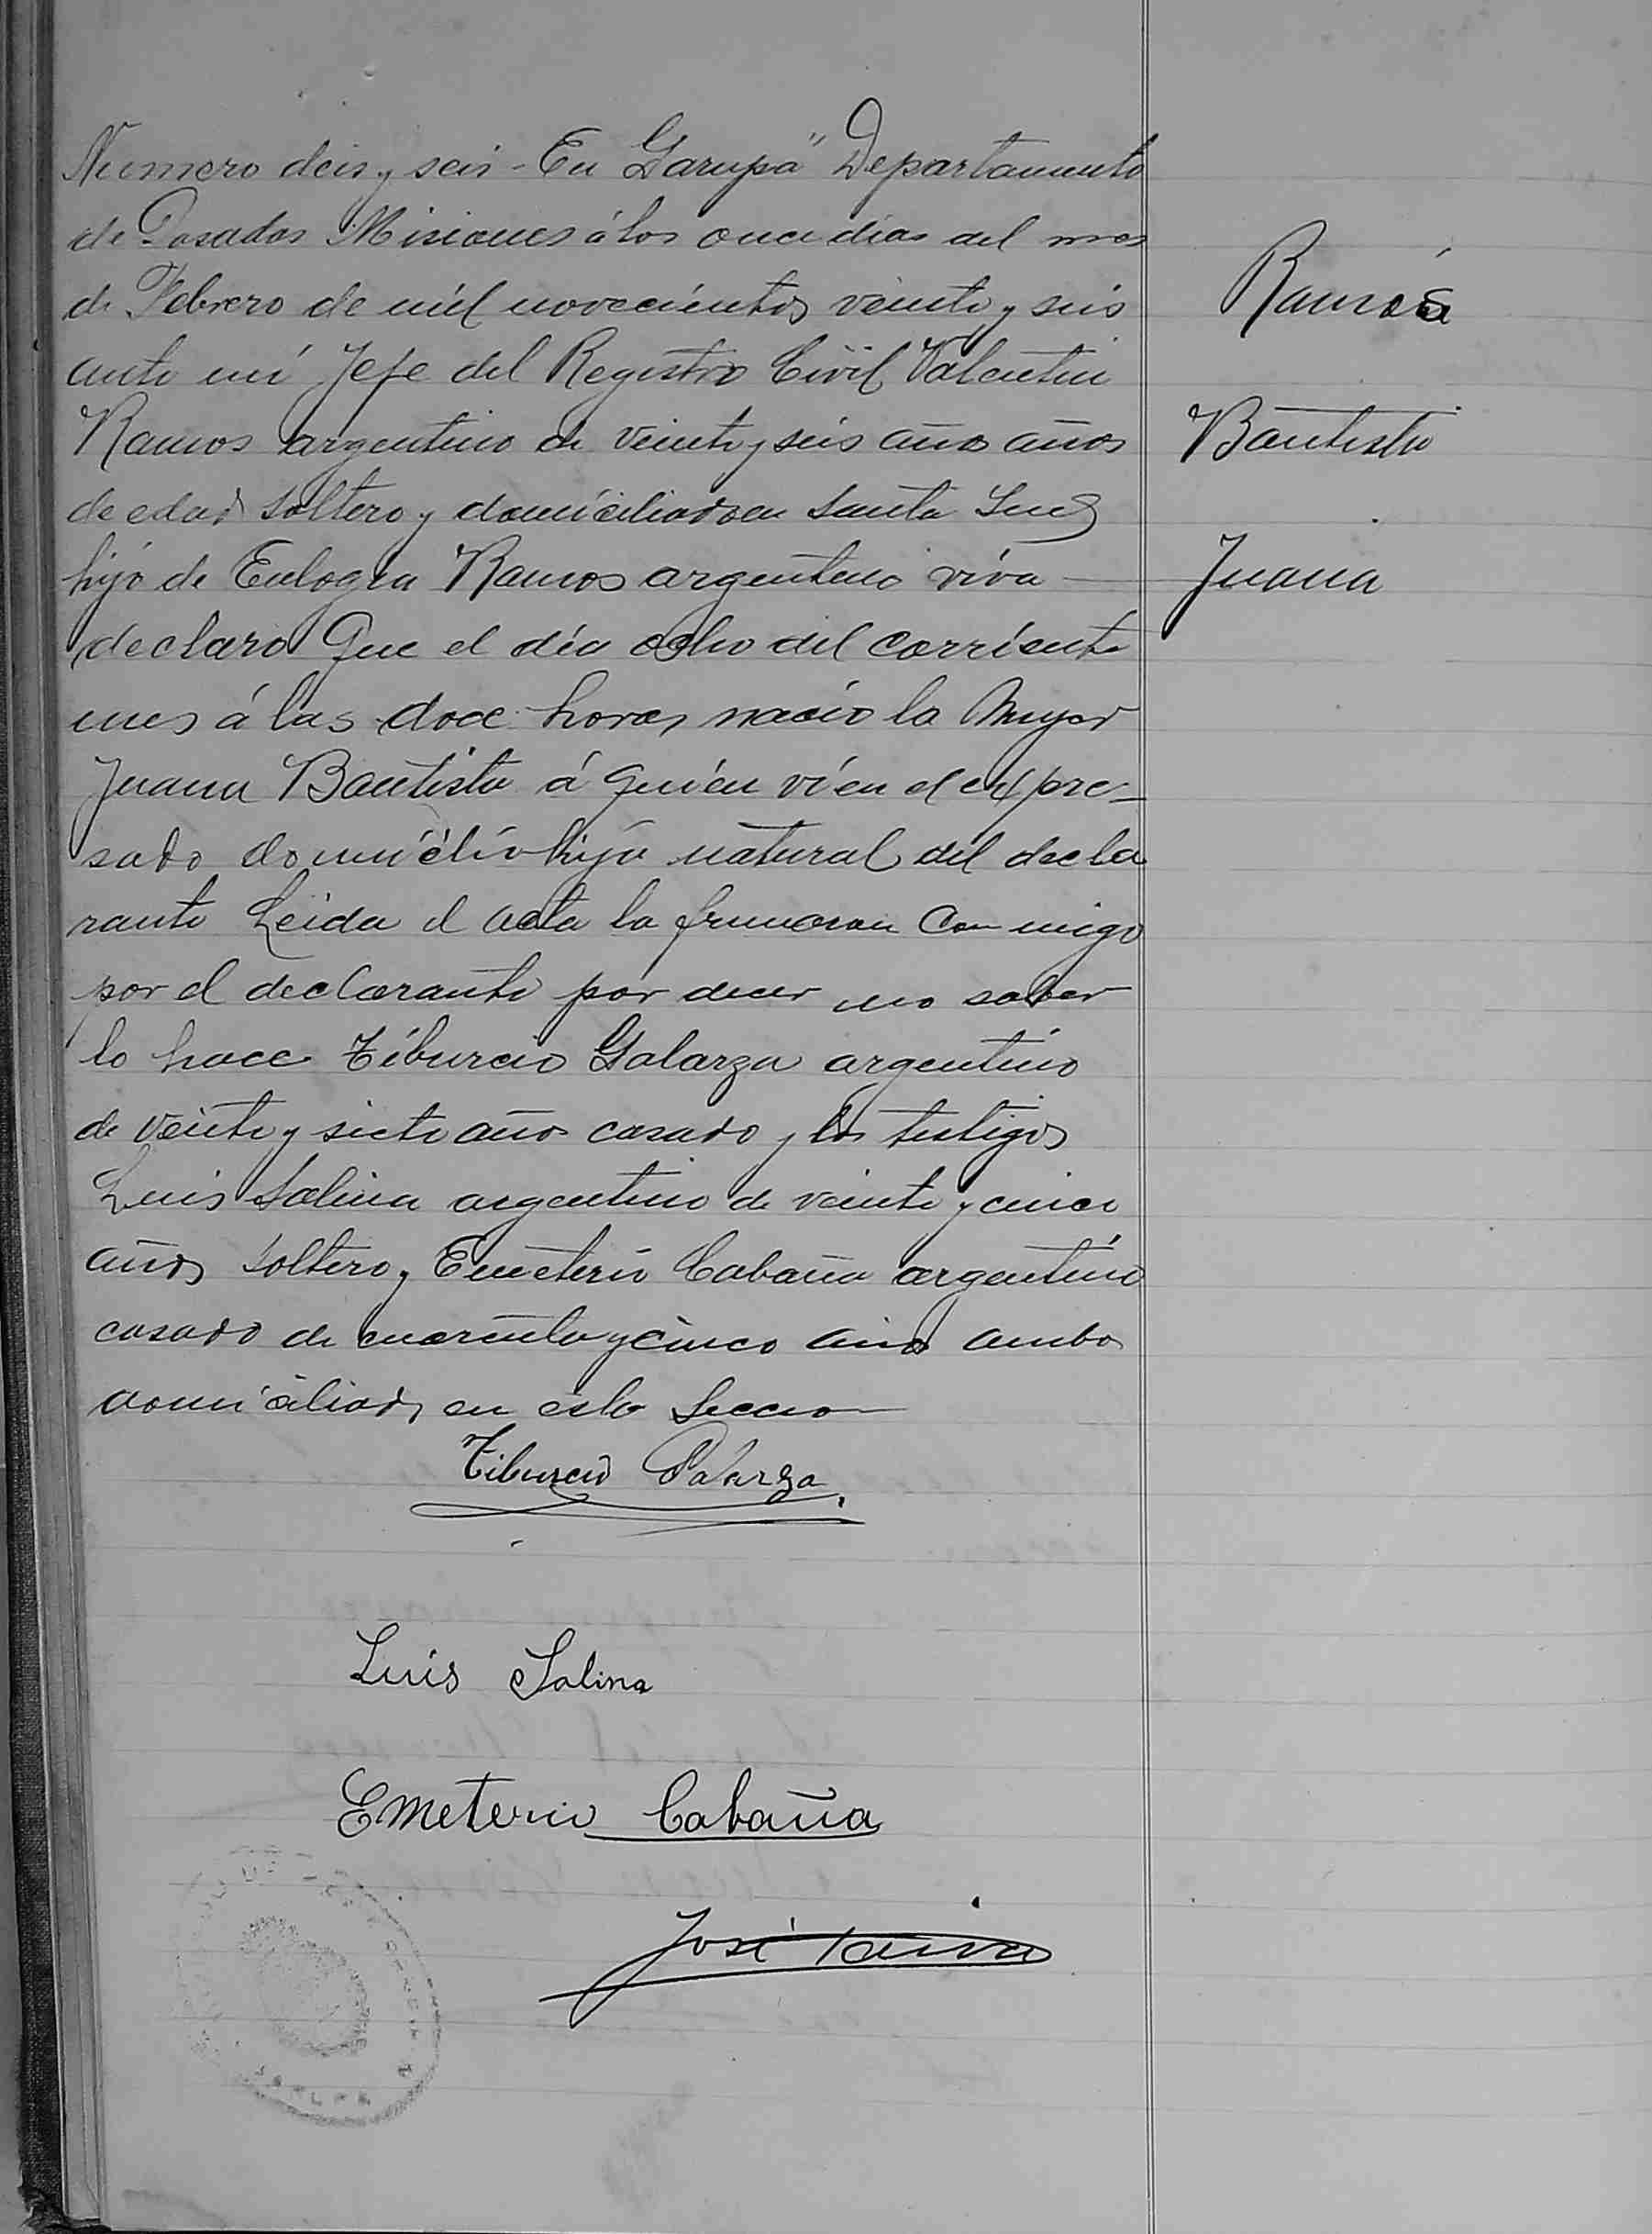 Numero deis y seis - En Garupá" Departamento
de Posadas Misiones á los once dias del mes
de Febrero de mil novecientos veinte y seis
ante mí Jefe del Registro Civil Valentin
Ramos argentino de veinte y seis años años
de edad soltero y domiciliado en Santa Ines
hijo de Eulogia Ramos argentina viva
declaro Que el día ocho del corriente
mes á las doce horas nacio la Mujer
Juana Bautista á quien ví en el expre-
sado domicilio hija natural del decla
rante Leida el acta la firmaron con migo
por el declarante por decir no saber
lo hace Tiburcio Galarza argentino
de veinte y siete años casado y los testigos
Luis Salina argentino de veinte y cinco
años soltero y Emeterio Cabaña argentino
casado de cuarenta y cinco años ambos
domiciliados en esta Seccion
Tiburcio Galarza
Luis Salina
Emeterio Cabaña
José
Ramos
Bautista
Juana